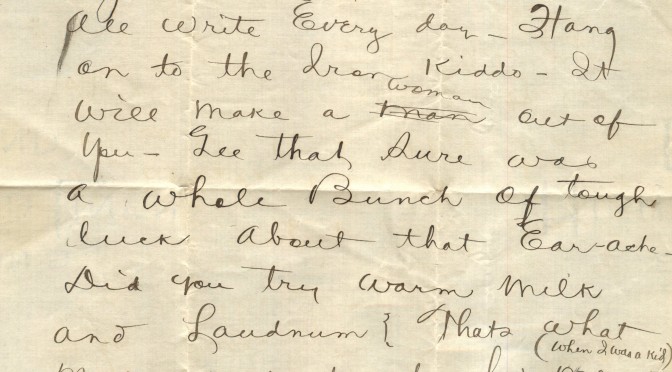 All write Every day - Hang
on to the Iron Kiddo - It
woman
will make a man out of
You - Gee that Sure was
a whole Bunch of tough
luck about that Ear-ache -
Did you try warm milk
and Laudnum { Thats what
(when I was a Kid)